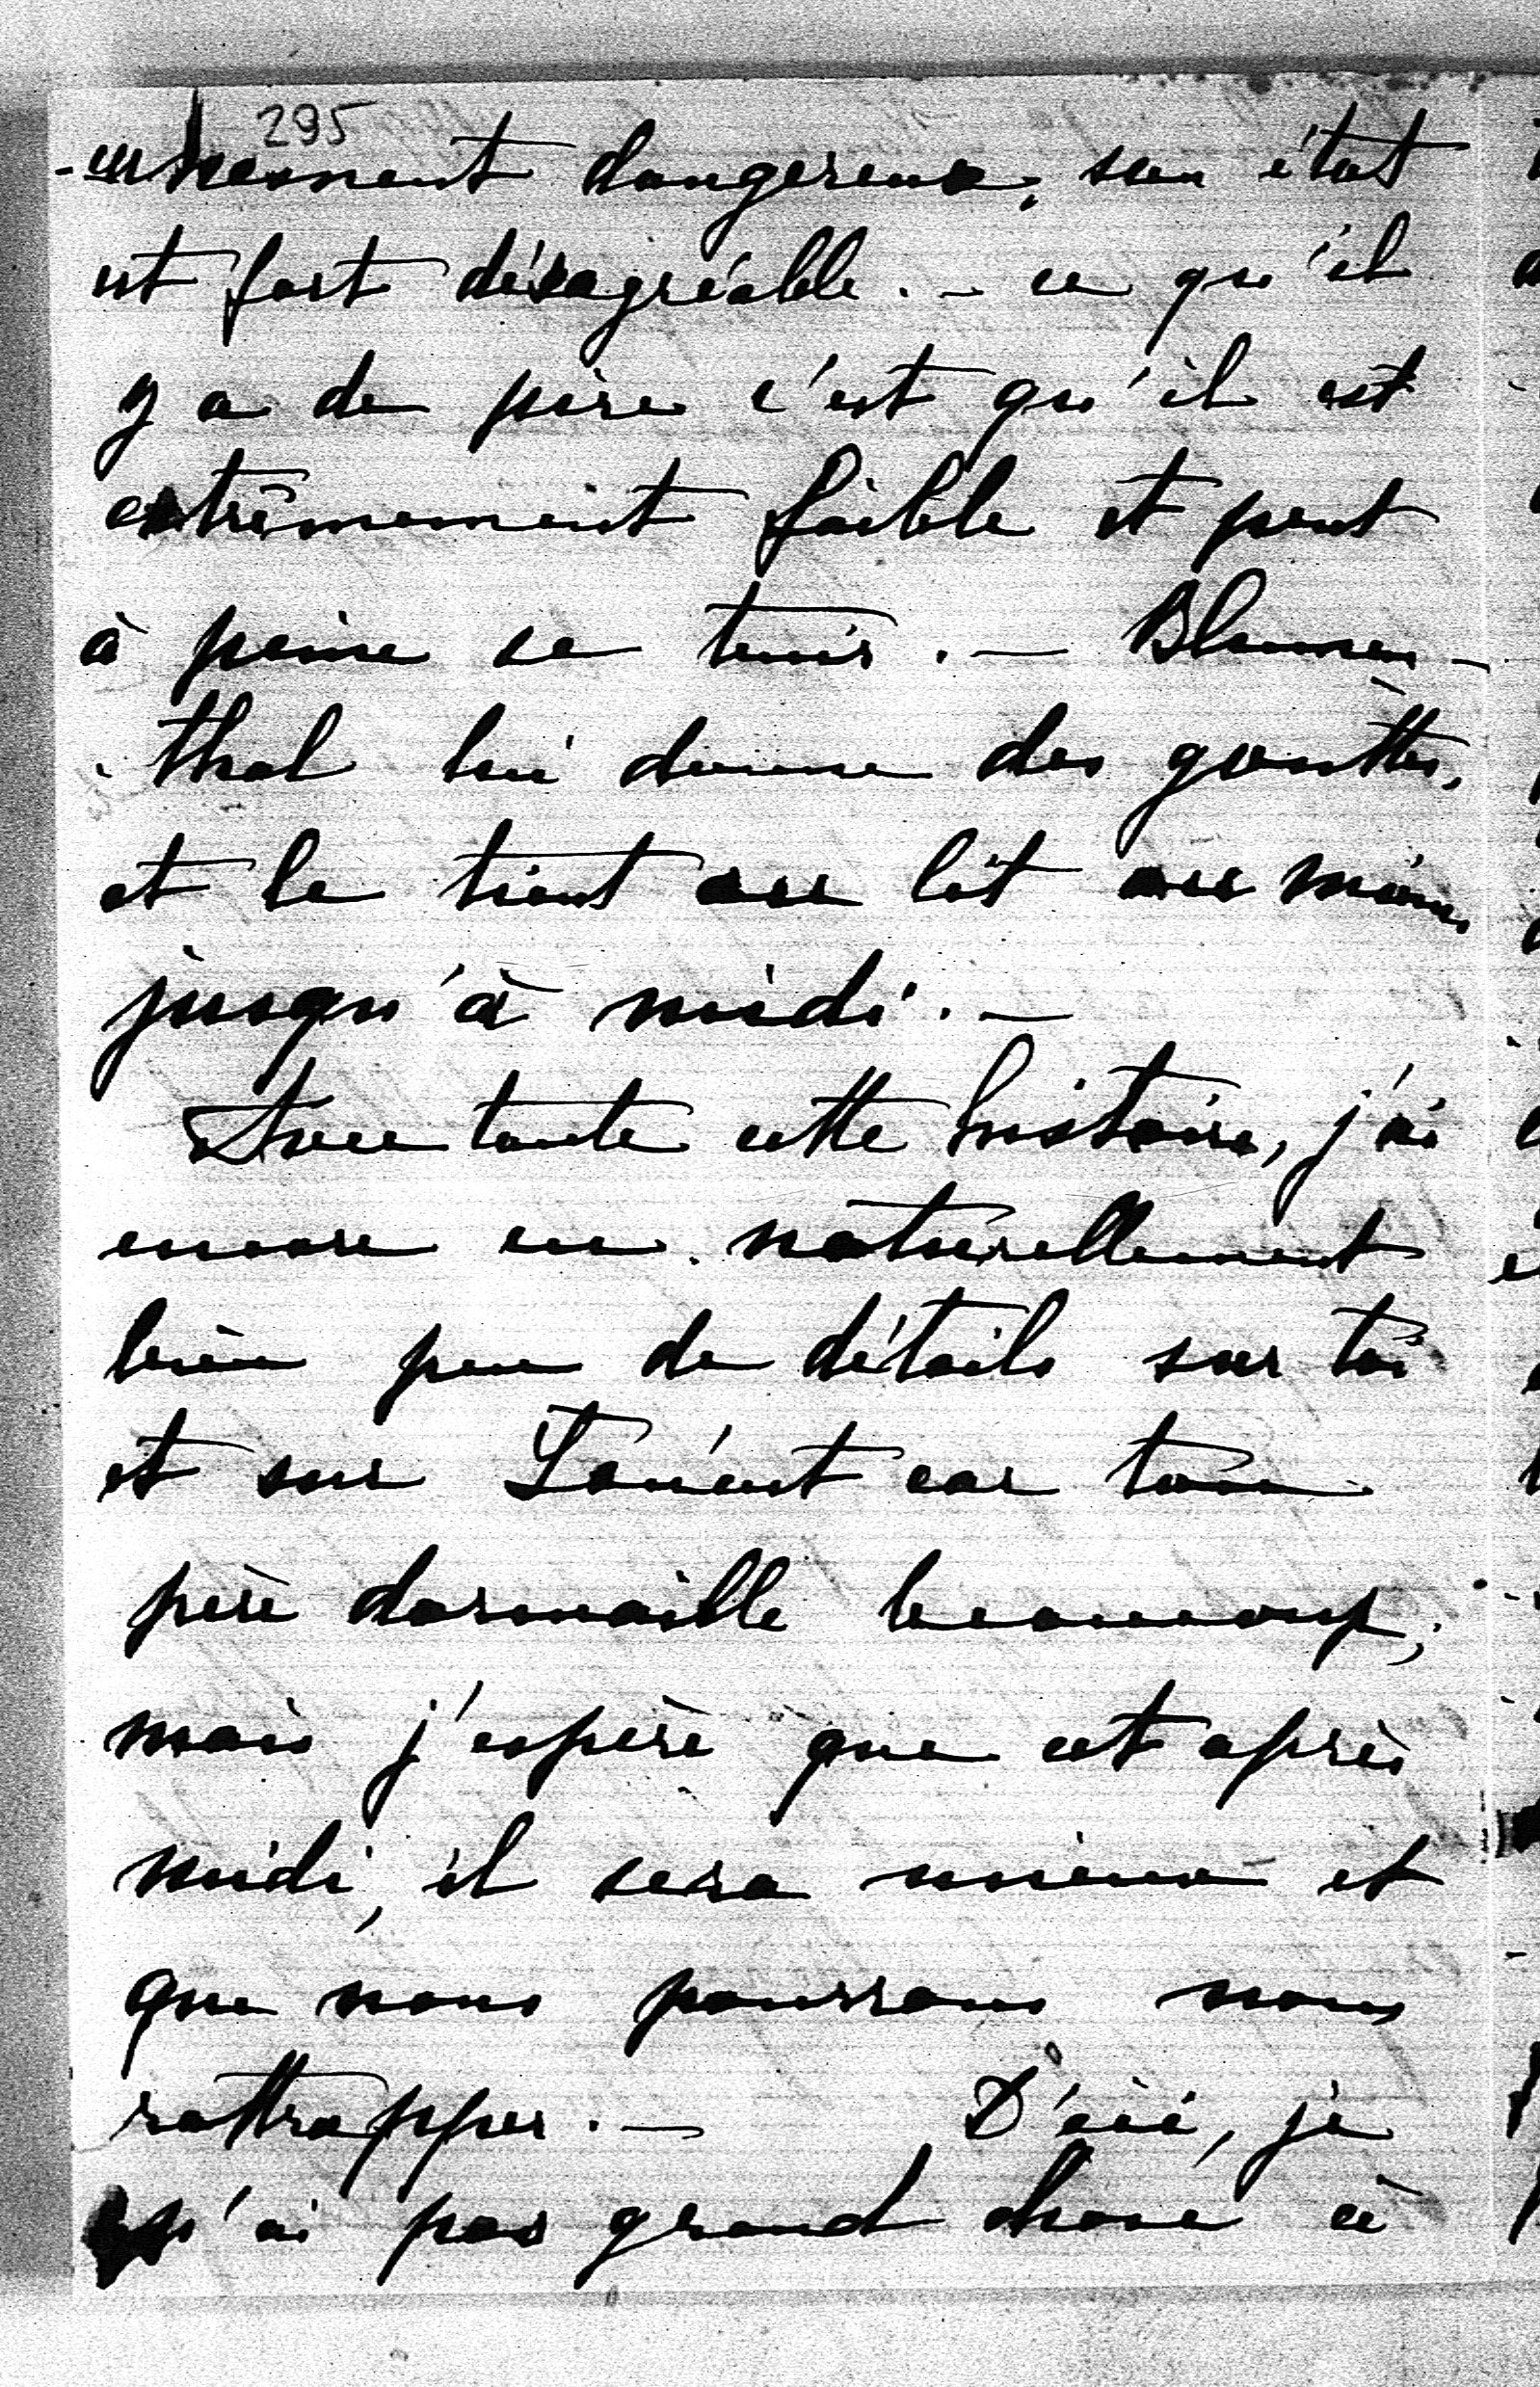 295
-cunement dangereux, son état
est fort désagréable. - ce qu'il
y a de pire c'est qu'il est
extrêmement faible et peut
à peine se tenir. - Blumen-
thal lui donne des gouttes,
et le tient au lit au moins
jusqu'à midi. -
Avec toute cette histoire, j'ai
encore eu naturellement
bien peu de détails sur toi
et sur car ton
père dormaille beaucoup;
mais j'espère que cet après
midi, il sera mieux et
que nous pourrons nous
rattrapper. - D'ici, je
n'ai pas grand chose à